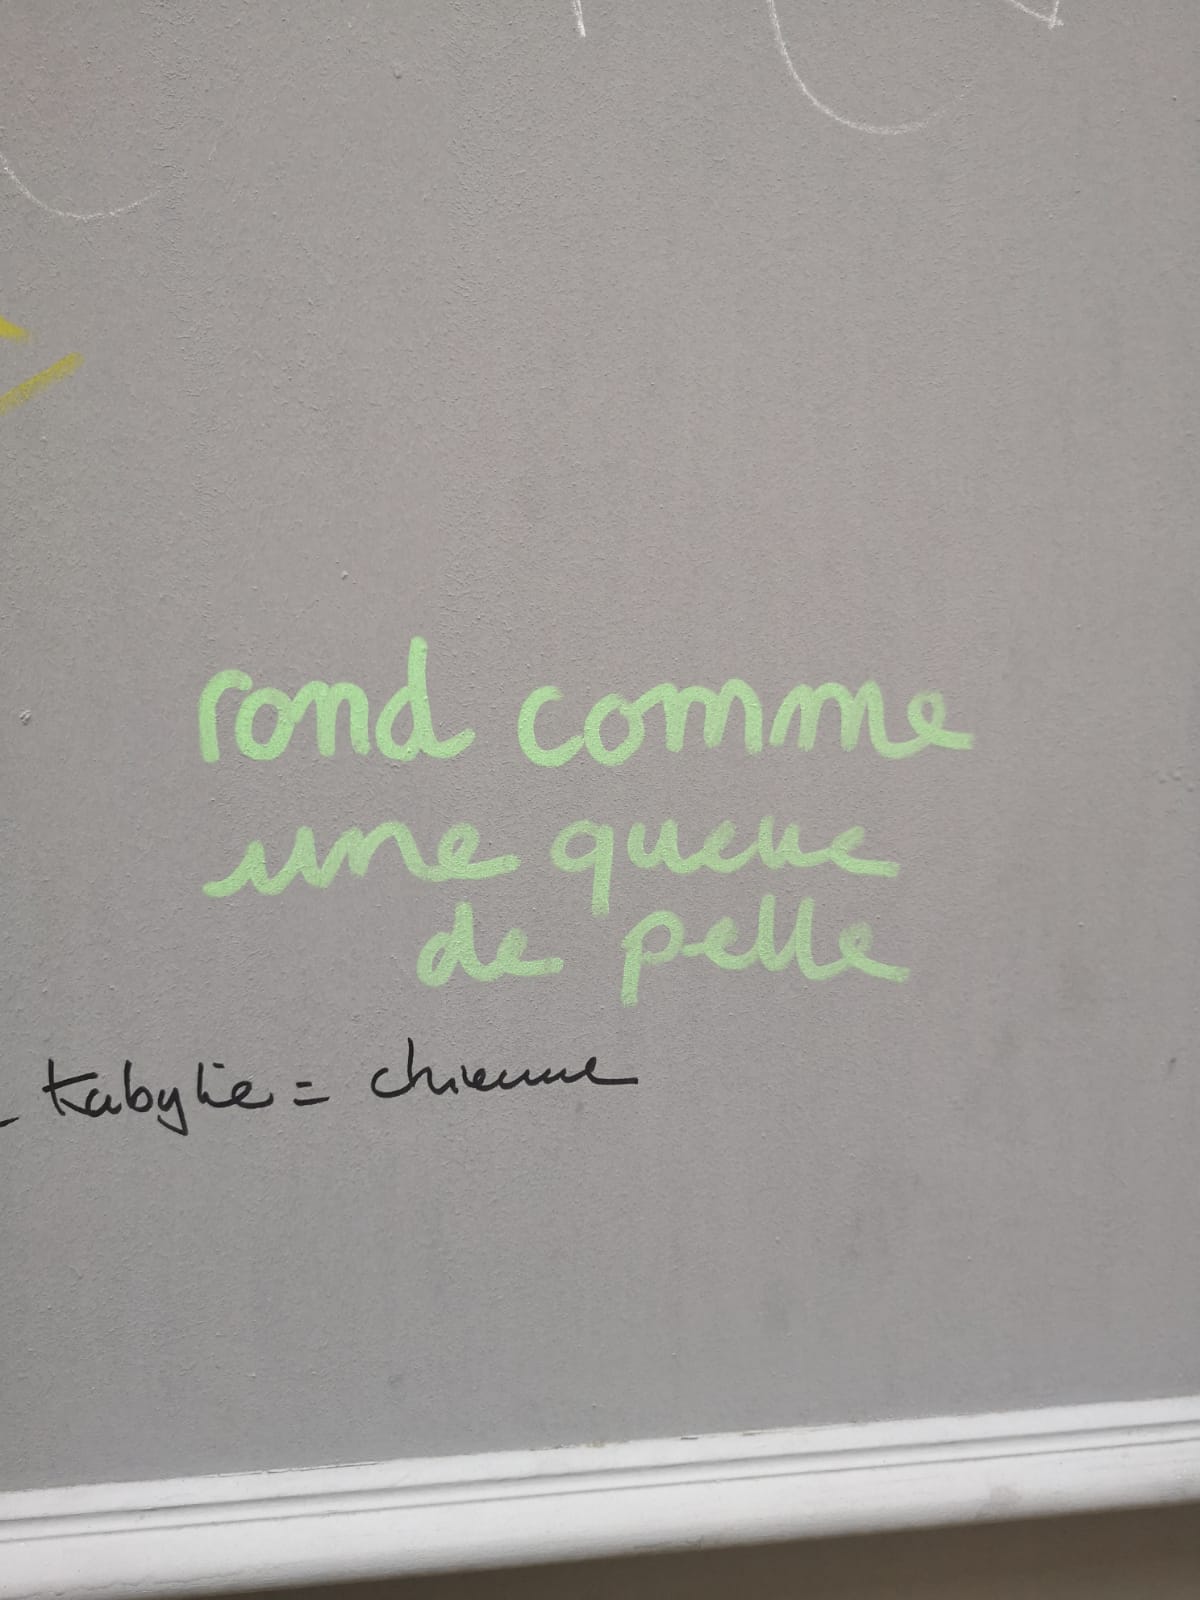 rond comme
une queue
de pelle
- Kabylie = chienne